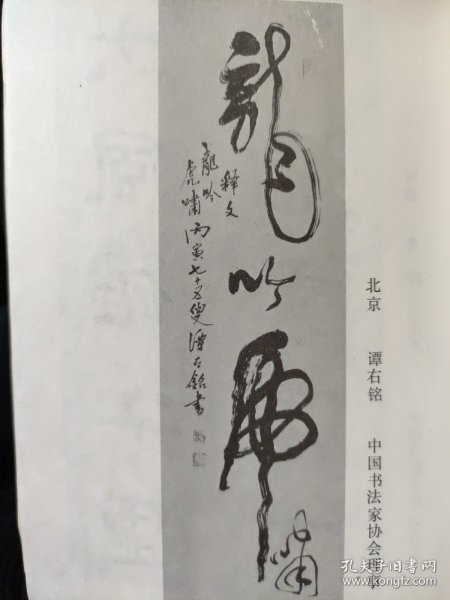 龍吟虎嘯
释文
龍吟
虎嘯 丙寅七十五叟谭右銘書
北京 谭右铭 中国书法家协会理事
孔夫子旧书网
kongfz.com